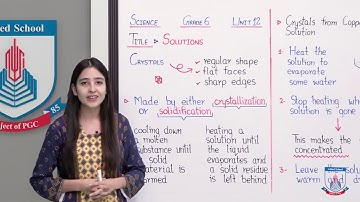 ed School
ject of PGC
85
Science Grade 6 Unit 12
Title :- Solutions
Crystals
✓ regular shape
✓ flat faces
✓ sharp edges
Made by either crystallization
or solidification.
cooling down
a molten
substance until
solid
material is
formed
heating a
solution until
the liquid
evaporates and
a solid residue
is left behind
Crystals from Copp
Solution
1- Heat the
solution to
evaporate
some water
2- Stop heating wh
solution is gone
This makes the
concentrated
3- Leave the sol
warm